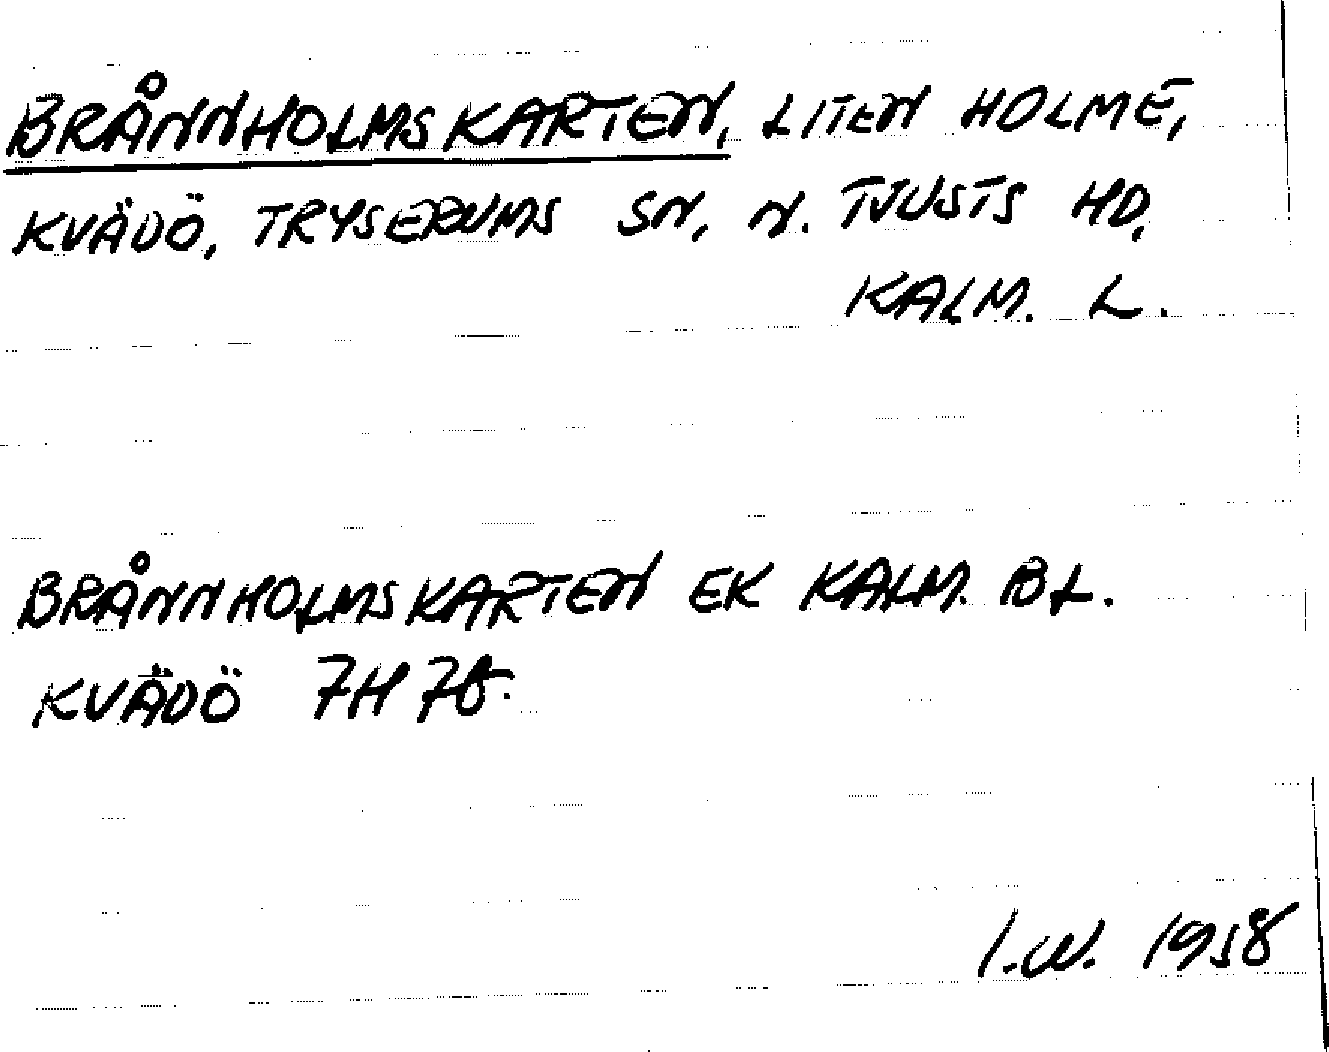 BRÅNNHOLMSKARTEN, LITEN HOLME,
KVÄDÖ, TRYSERUMS SN, N. TJUSTS HD,
KALM. L.
BRÅNNHOLMSKARTEN EK KALM. BL.
KVÄDÖ 7H 7b.
I.W. 1958